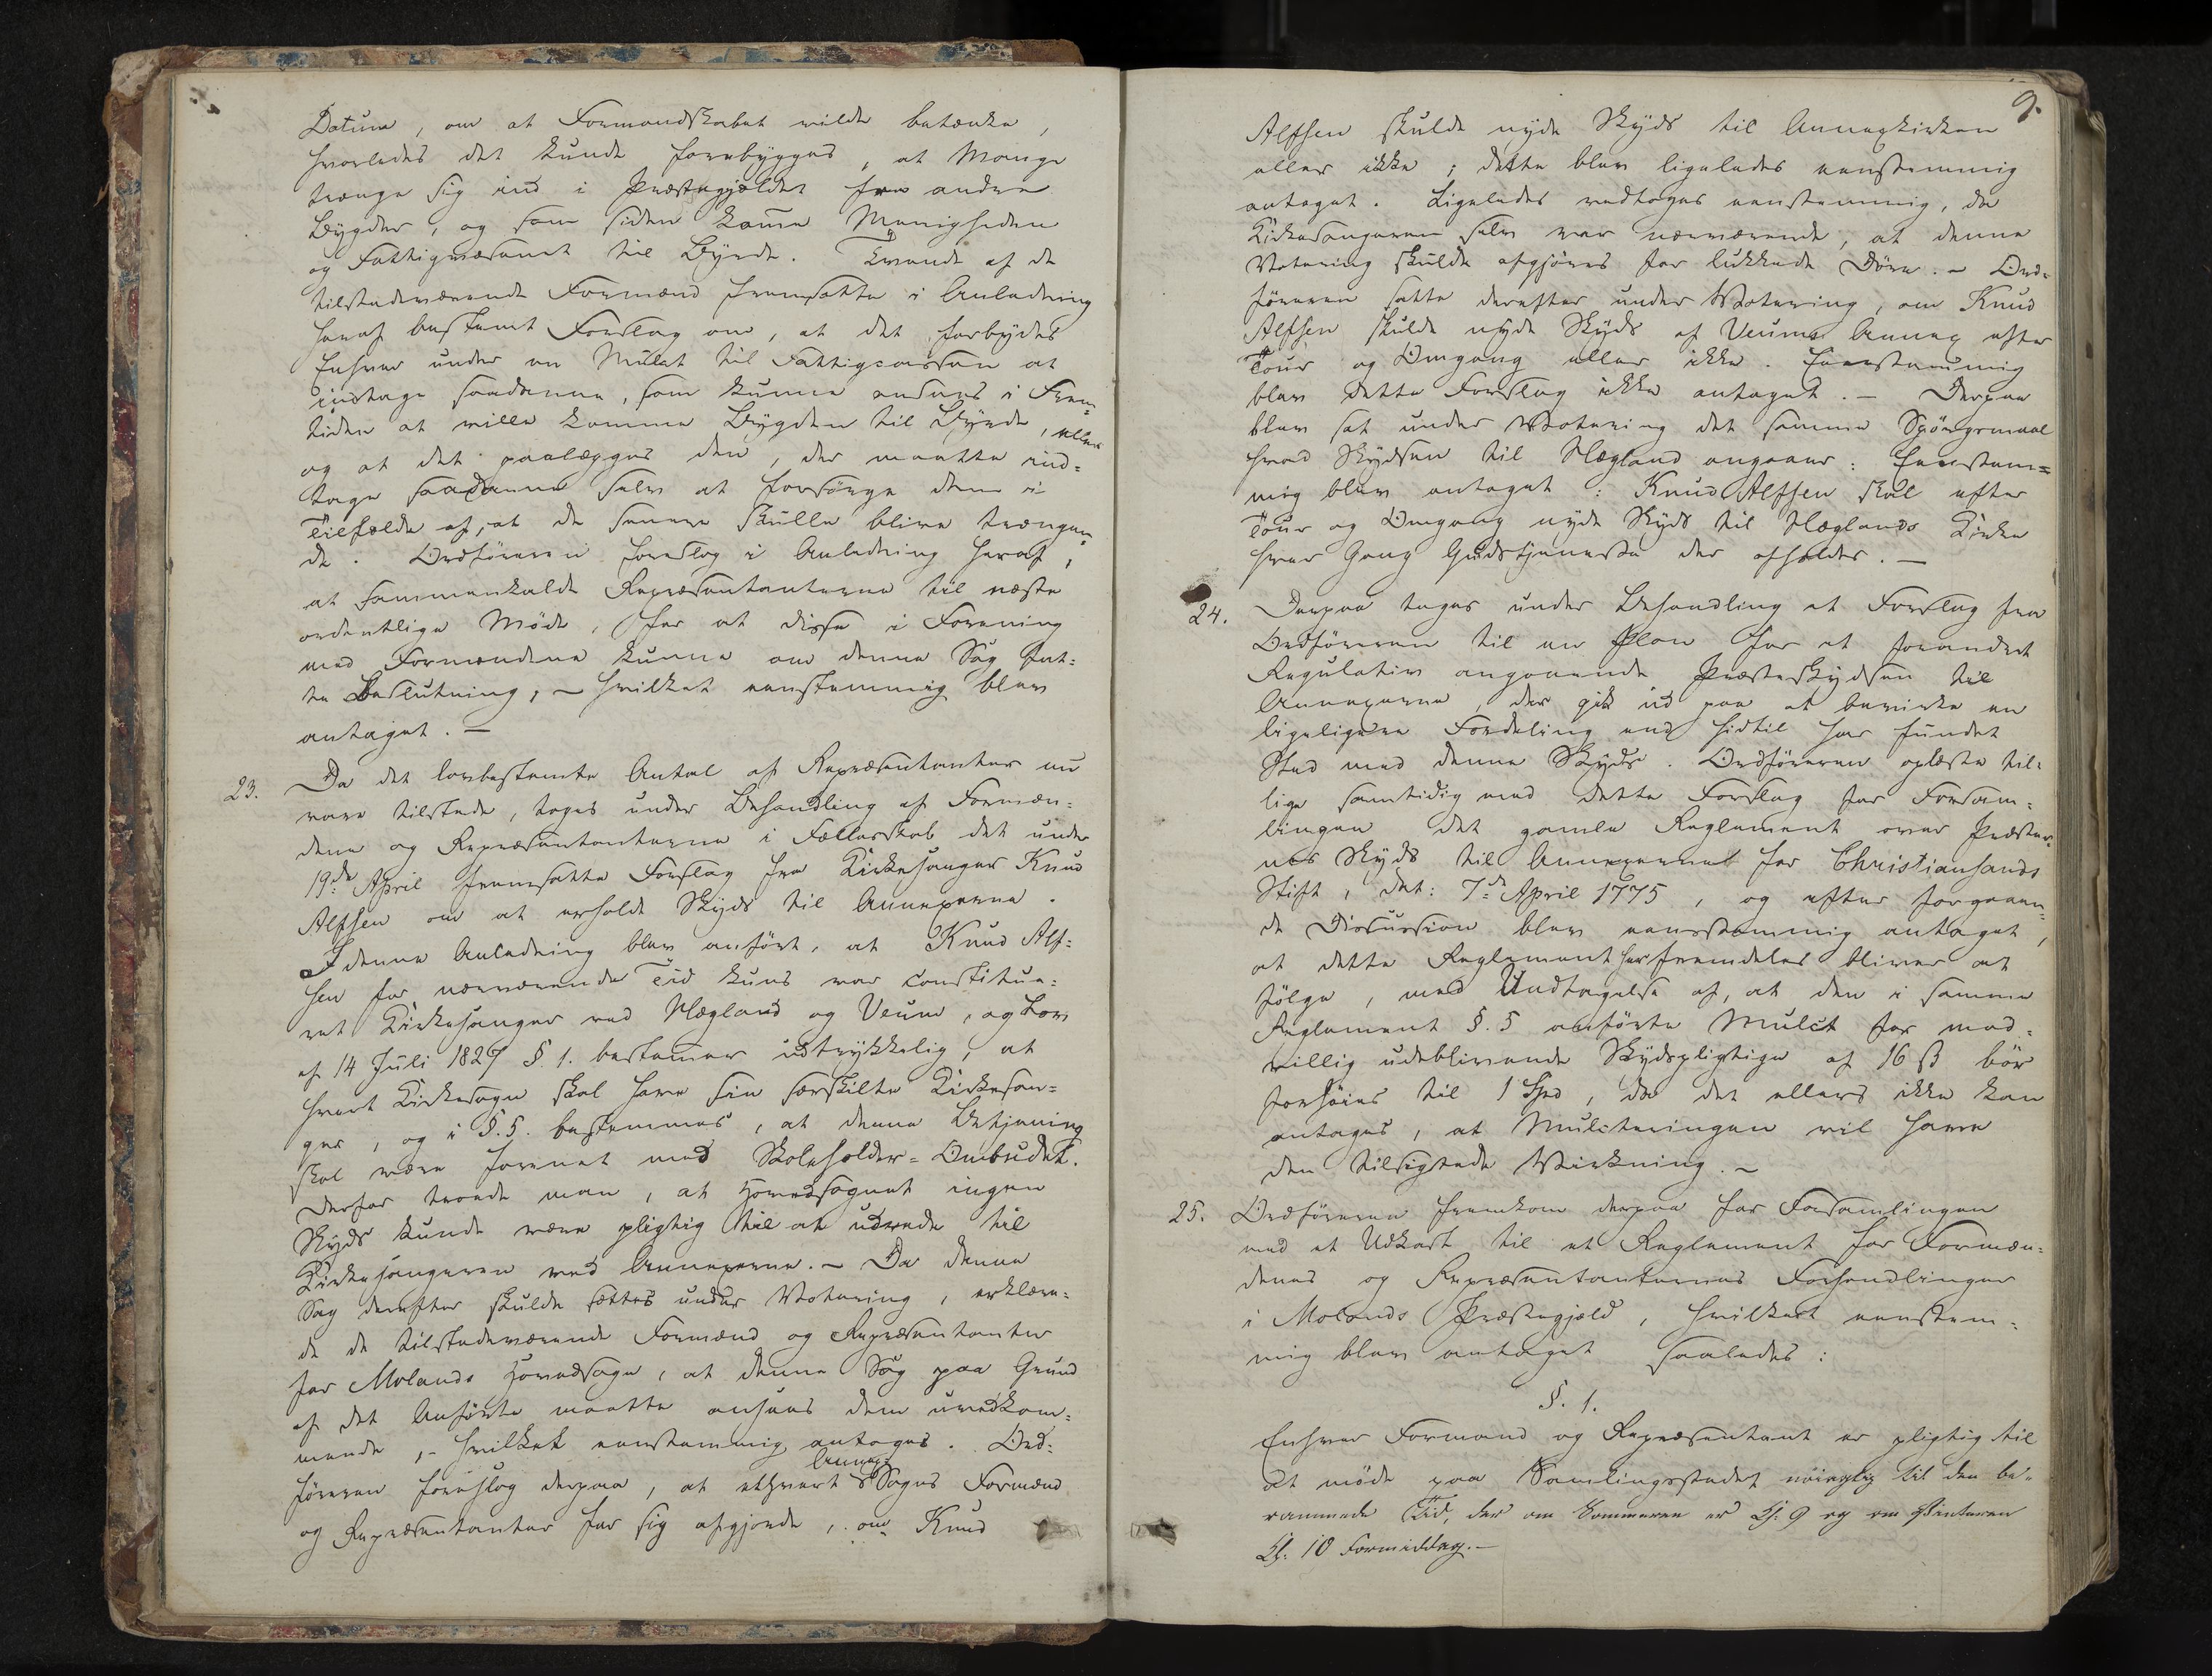 Datum, om at Formandskabet vilde betænke,
hvorledes det kunde forebygges, at Mange
trænge sig ind i Præstegjeldet fra andre
Bygder, og som siden komme Menigheden
og Fattigvæsenet til Byrde. Tvende af de
tilstedeværende Formænd fremsatte i Anledning
heraf bestemt Forslag om, at det forbydes
Enhver under en Mulct til Fattigcassen at
indtage saadanne, som kunne ansees i Frem-
tiden at ville komme Bygden til Byrde, eller
og at det paalægges den, der maatte ind-
tage saadanne selv at forsörge dem i
Tilfælde af, at de senere skulle blive trængen-
de. Ordföreren foreslog i Anledning heraf,
at sammenkalde Repræsentanterne til næste
ordentlige Möde, for at disse i Forening
med Formændene kunne om denne Sag fat-
te Beslutning; - hvilket eenstemmig blev
antaget. -
23. Da det lovbestemte Antal af Repræsentanter nu
vare tilstede, toges under Behandling af Formæn-
dene og Repræsentanterne i Fællesskab det under
19de April fremsatte Forslag fra Kirkesanger Knud
Alfsen om at erholde Skyds til Annexerne.
I denne Anledning blev anfört, at Knud Alf-
sen for nærværende Tid kuns var constitue-
ret Kirkesanger ved Hægland og Veum, og Lov
af 14 Juli 1827 §. 1. bestemmer udtrykkelig, at
hvert Kirkesogn skal have sin særskilte Kirkesan-
ger, og i §. 5. bestemmes, at denne Betjening
skal være forenet med Skoleholder-Ombudet.
Derfor troede man, at Hovedsognet ingen
Skyds kunde være pligtig til at udrede til
Kirkesangeren ved Annexerne. - Da denne
Sag derefter skulde sættes under Votering, erklære-
de de tilstedeværende Formænd og Repræsentanter
for Molands Hovedsogn, at denne Sag paa Grund
af det Anförte maatte ansees dem uvedkom-
mende, - hvilket eenstemmig antoges. Ord-
föreren foreslog derpaa, at ethvert Annex-Sogns Formænd
og Repræsentanter for sig afgjorde, om Knud
9.
Alfsen skulde nyde Skyds til Annexkirken
eller ikke; dette blev ligeledes eenstemmig
antaget. Ligeledes vedtoges eenstemmig, da
Kirkesangeren selv var nærværende, at denne
Votering skulde afgjöres for lukkede Döre. - Ord-
föreren satte derefter under Votering, om Knud
Alfsen skulde nyde Skyds af Veums Annex efter
Tour og Omgang eller ikke. Eenstemmig
blev dette Forslag ikke antaget. - Derpaa
blev sat under Votering det samme Spörgsmaal
hvad Skydsen til Hægland angaaer: Eenstem-
mig blev antaget: Knud Alfsen skal efter
Tour og Omgang nyde Skyds til Hæglands Kirke
hver Gang Gudstjeneste der afholdes. -
24. Derpaa toges under Behandling et Forslag fra
Ordföreren til en Plan for et forandret
Regulativ angaaende Præsteskydsen til
Annexerne, der gik ud paa at bevirke en
ligeligere Fordeling end hidtil har fundet
Sted med denne Skyds. Ordföreren oplæste til-
lige samtidig med dette Forslag for Forsam-
lingen det gamle Reglement over Præster-
nes Skyds til Annexerne for Christiansands
Stift, dat: 7de April 1775, og efter forgaaen-
de Discussion blev eenstemmig antaget,
at dette Reglement her fremdeles bliver at
fölge, med Undtagelse af, at den i samme
Reglement §. 5 anförte Mulct for mod-
villig udeblivende Skydspligtige af 16 ß bör
forhöies til 1 Spd, da det ellers ikke kan
antages, at Mulcteringen vil have
den tilsigtede Virkning. -
25. Ordföreren fremkom derpaa for Forsamlingen
med et Udkast til et Reglement for Formæn-
denes og Repræsentanternes Forhandlinger
i Molands Præstegjeld, hvilket eenstem-
mig blev antaget saaledes:
§. 1.
Enhver Formand og Repræsentant er pligtig til
at möde paa Samlingsstedet nöiagtig til den be-
rammede Tid, der om Sommeren er Kl. 9 og om Vinteren
Kl. 10 Formiddag. -